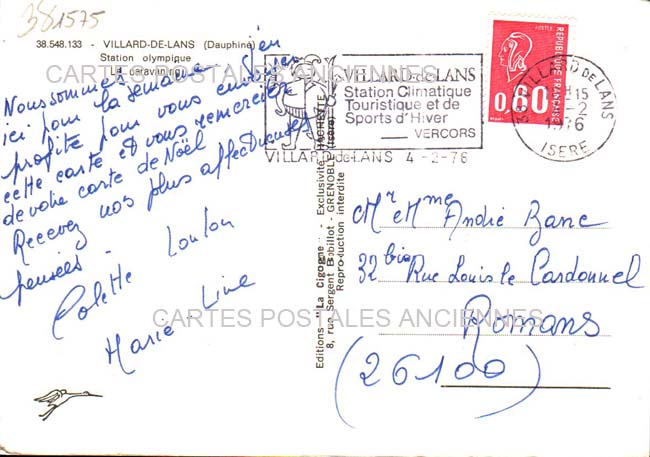 381575
38.548.133 - VILLARD-DE-LANS (Dauphiné)
Station olympique
Le caravaning
CARTES POSTALES ANCIENNES
Nous sommes
ici pour la semaine j'en
profite pour vous envoyer
cette carte et vous remercier
de votre carte de Noël
Recevez nos plus affectueuses
pensées -
Colette Loulou
Marie-Line
VILLARD-de-LANS
Station Climatique
Touristique et de
Sports d'Hiver
VERCORS
VILLARD-de-LANS 4-2-76
REPUBLIQUE FRANÇAISE
POSTES
0,80
38 VILLARD DE LANS
H15
-2
1976
ISERE
Editions "La Cigogne" - Exclusivité HACHETTE
8, rue Sergent Bobillot - GRENOBLE (Isère)
Reproduction interdite
Mr et Mme André Banc
32 bis Rue Louis le Cardonnel
Romans
(26100)
CARTES POSTALES ANCIENNES